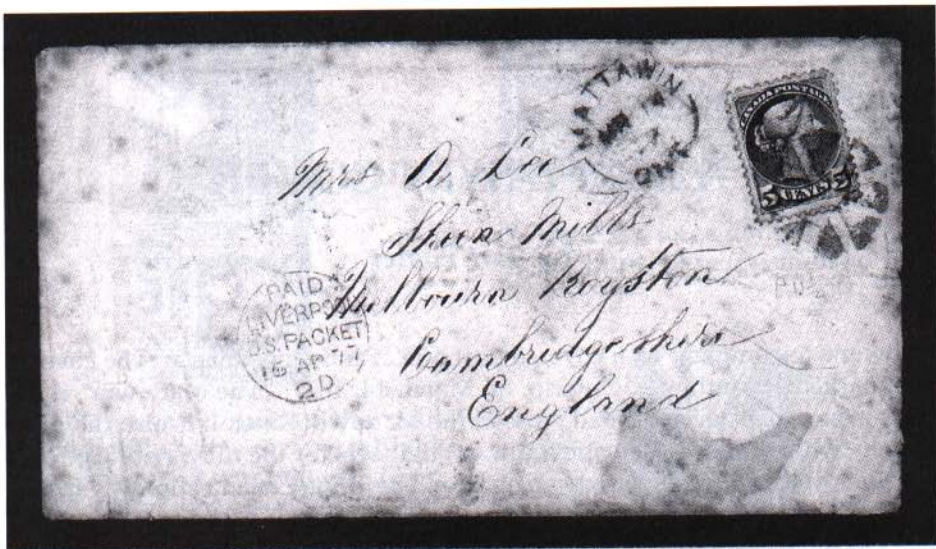 MATTAWIN
ONT
CANADA POSTAGE
5 CENTS 5
Mrs A. Lee
Sheen Mills
Melbourn Royston
Cambridgeshire
England
PAID
LIVERPOOL
U.S. PACKET
16 AP 77
2D